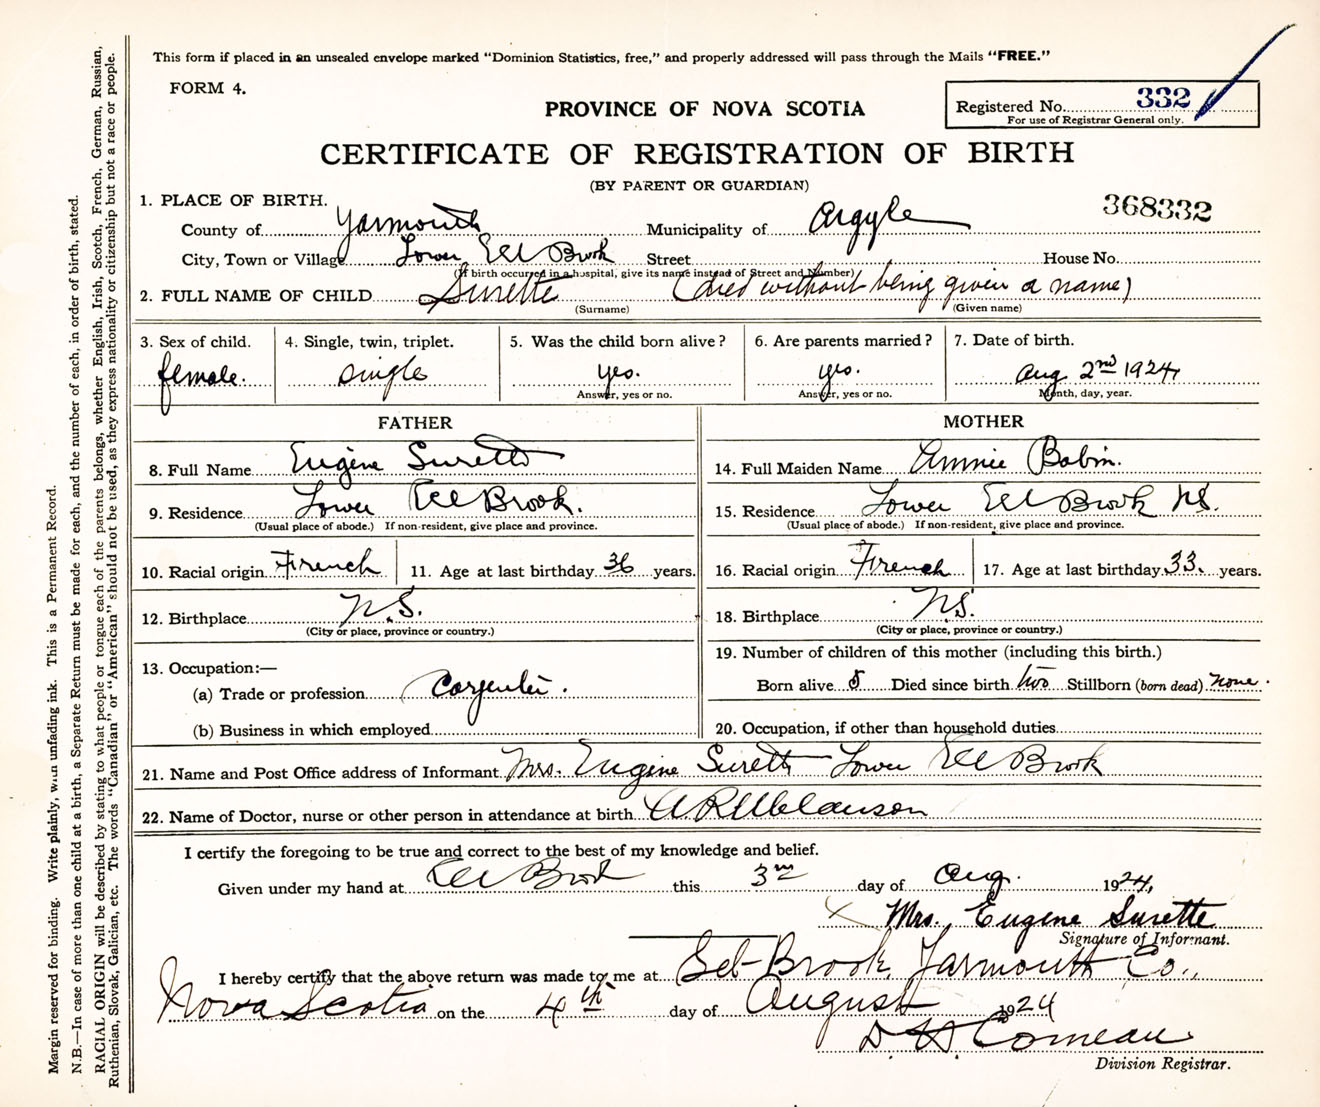 This form if placed in an unsealed envelope marked "Dominion Statistics, free," and properly addressed will pass through the Mails "FREE."
FORM 4.
Registered No. 332
For use of Registrar General only.
PROVINCE OF NOVA SCOTIA
CERTIFICATE OF REGISTRATION OF BIRTH
(BY PARENT OR GUARDIAN)
368332
1. PLACE OF BIRTH.
County of Yarmouth Municipality of Argyle
City, Town or Village Lower Eel Brook Street House No.
(If birth occurred in a hospital, give its name instead of Street and Number)
2. FULL NAME OF CHILD Surette (died without being given a name)
(Surname) (Given name)
3. Sex of child. 4. Single, twin, triplet. 5. Was the child born alive? 6. Are parents married? 7. Date of birth.
female. single yes. yes. Aug 2nd 1924
Answer, yes or no. Answer, yes or no. Month, day, year.
FATHER MOTHER
8. Full Name Eugène Surette 14. Full Maiden Name Annie Babin.
9. Residence Lower Eel Brook. 15. Residence Lower Eel Brook N.S.
(Usual place of abode.) If non-resident, give place and province. (Usual place of abode.) If non-resident, give place and province.
10. Racial origin French 11. Age at last birthday 36 years. 16. Racial origin French 17. Age at last birthday 33. years.
12. Birthplace N.S. 18. Birthplace N.S.
(City or place, province or country.) (City or place, province or country.)
13. Occupation:— 19. Number of children of this mother (including this birth.)
(a) Trade or profession Carpenter. Born alive 5 Died since birth two Stillborn (born dead) none.
(b) Business in which employed 20. Occupation, if other than household duties
21. Name and Post Office address of Informant Mrs. Eugène Surette Lower Eel Brook
22. Name of Doctor, nurse or other person in attendance at birth A R Melanson
I certify the foregoing to be true and correct to the best of my knowledge and belief.
Given under my hand at Eel Brook this 3rd day of Aug. 1924,
Mrs. Eugene Surette
Signature of Informant.
I hereby certify that the above return was made to me at Eel-Brook, Yarmouth Co.,
Nova Scotia on the 4th day of August 1924
D. H. Comeau
Division Registrar.
Margin reserved for binding. Write plainly, with unfading ink. This is a Permanent Record.
N.B.—In case of more than one child at a birth, a Separate Return must be made for each, and the number of each, in order of birth, stated.
RACIAL ORIGIN will be described by stating to what people or tongue each of the parents belongs, whether English, Irish, Scotch, French, German, Russian,
Ruthenian, Slovak, Galician, etc. The words "Canadian" or "American" should not be used, as they express nationality or citizenship but not a race or people.